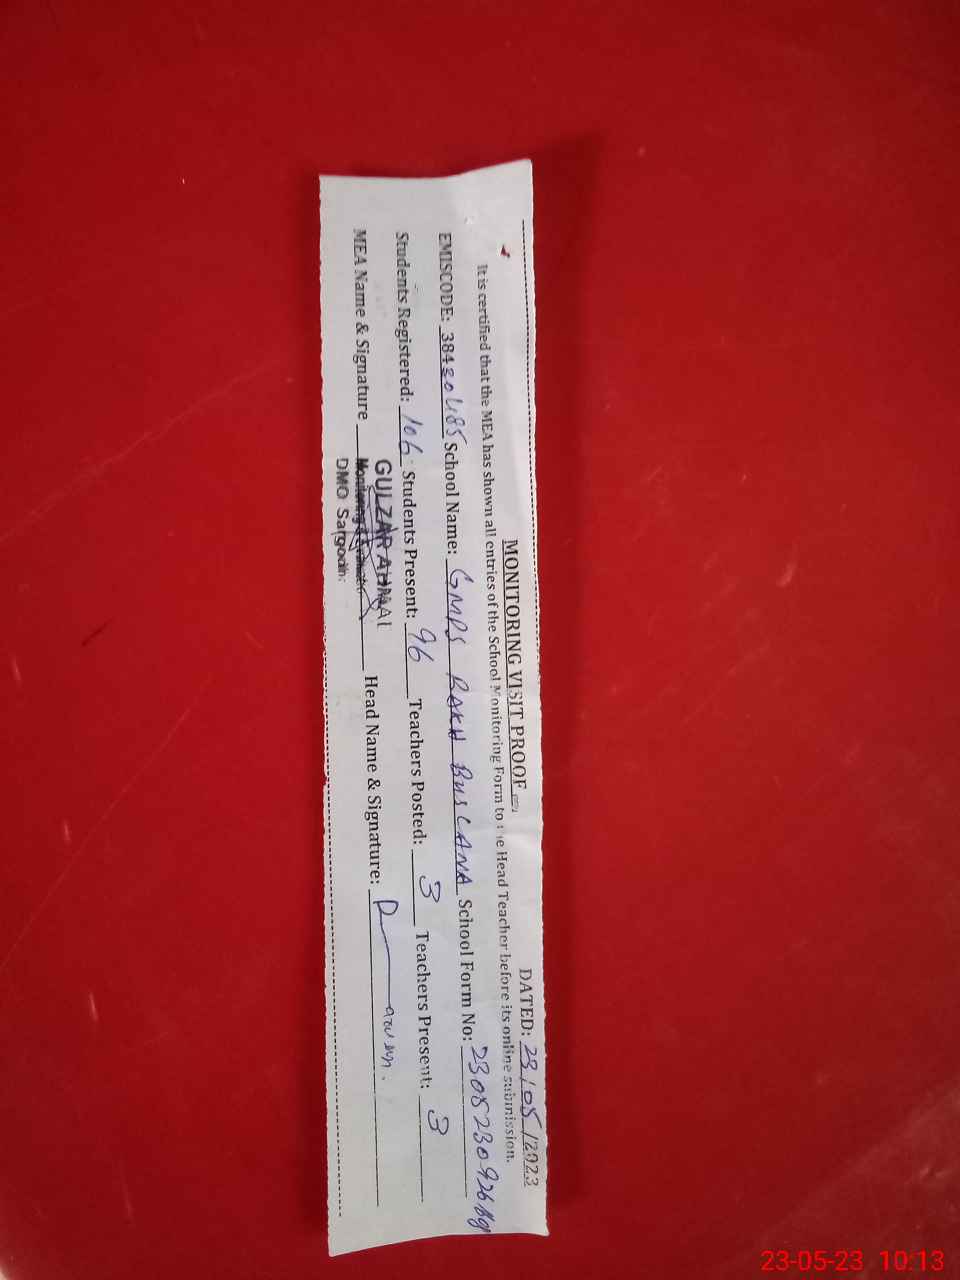 MONITORING VISIT PROOF
DATED: 23/05/2023
It is certified that the MEA has shown all entries of the School Monitoring Form to the Head Teacher before its online submission.
EMISCODE: 38430485 School Name: GMPS RAKH BUSLANA School Form No: 230523092689
Students Registered: 106 Students Present: 96 Teachers Posted: 3 Teachers Present: 3
MEA Name & Signature Head Name & Signature:
GULZAR AHMA
DMO Sargodh
23-05-23 10:13